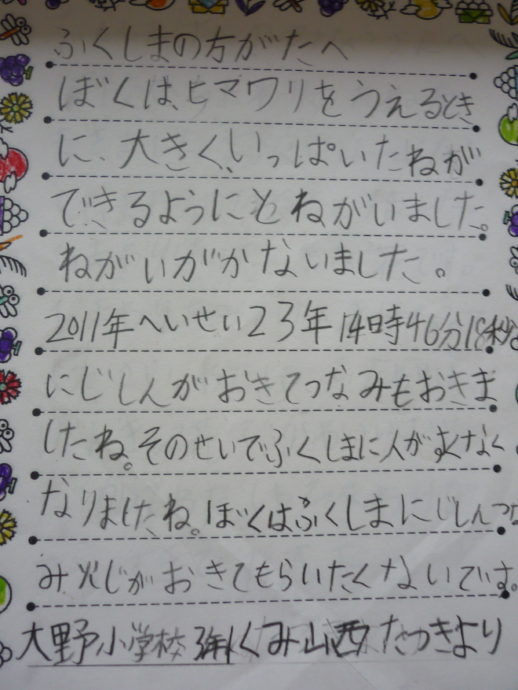 ふくしまの方がたへ
ぼくは、ヒマワリをうえるとき
に、大きく、いっぱいたねが
できるようにとねがいました。
ねがいがかないました。
2011年へいせい23年14日時46分18秒
にじしんがおきてつなみもおきま
したね。そのせいでふくしまに人がすくなく
なりましたね。ぼくはふくしまにじしんつな
み火じがおきてもらいたくないです。
大野小学校3年1くみ山西たつきより